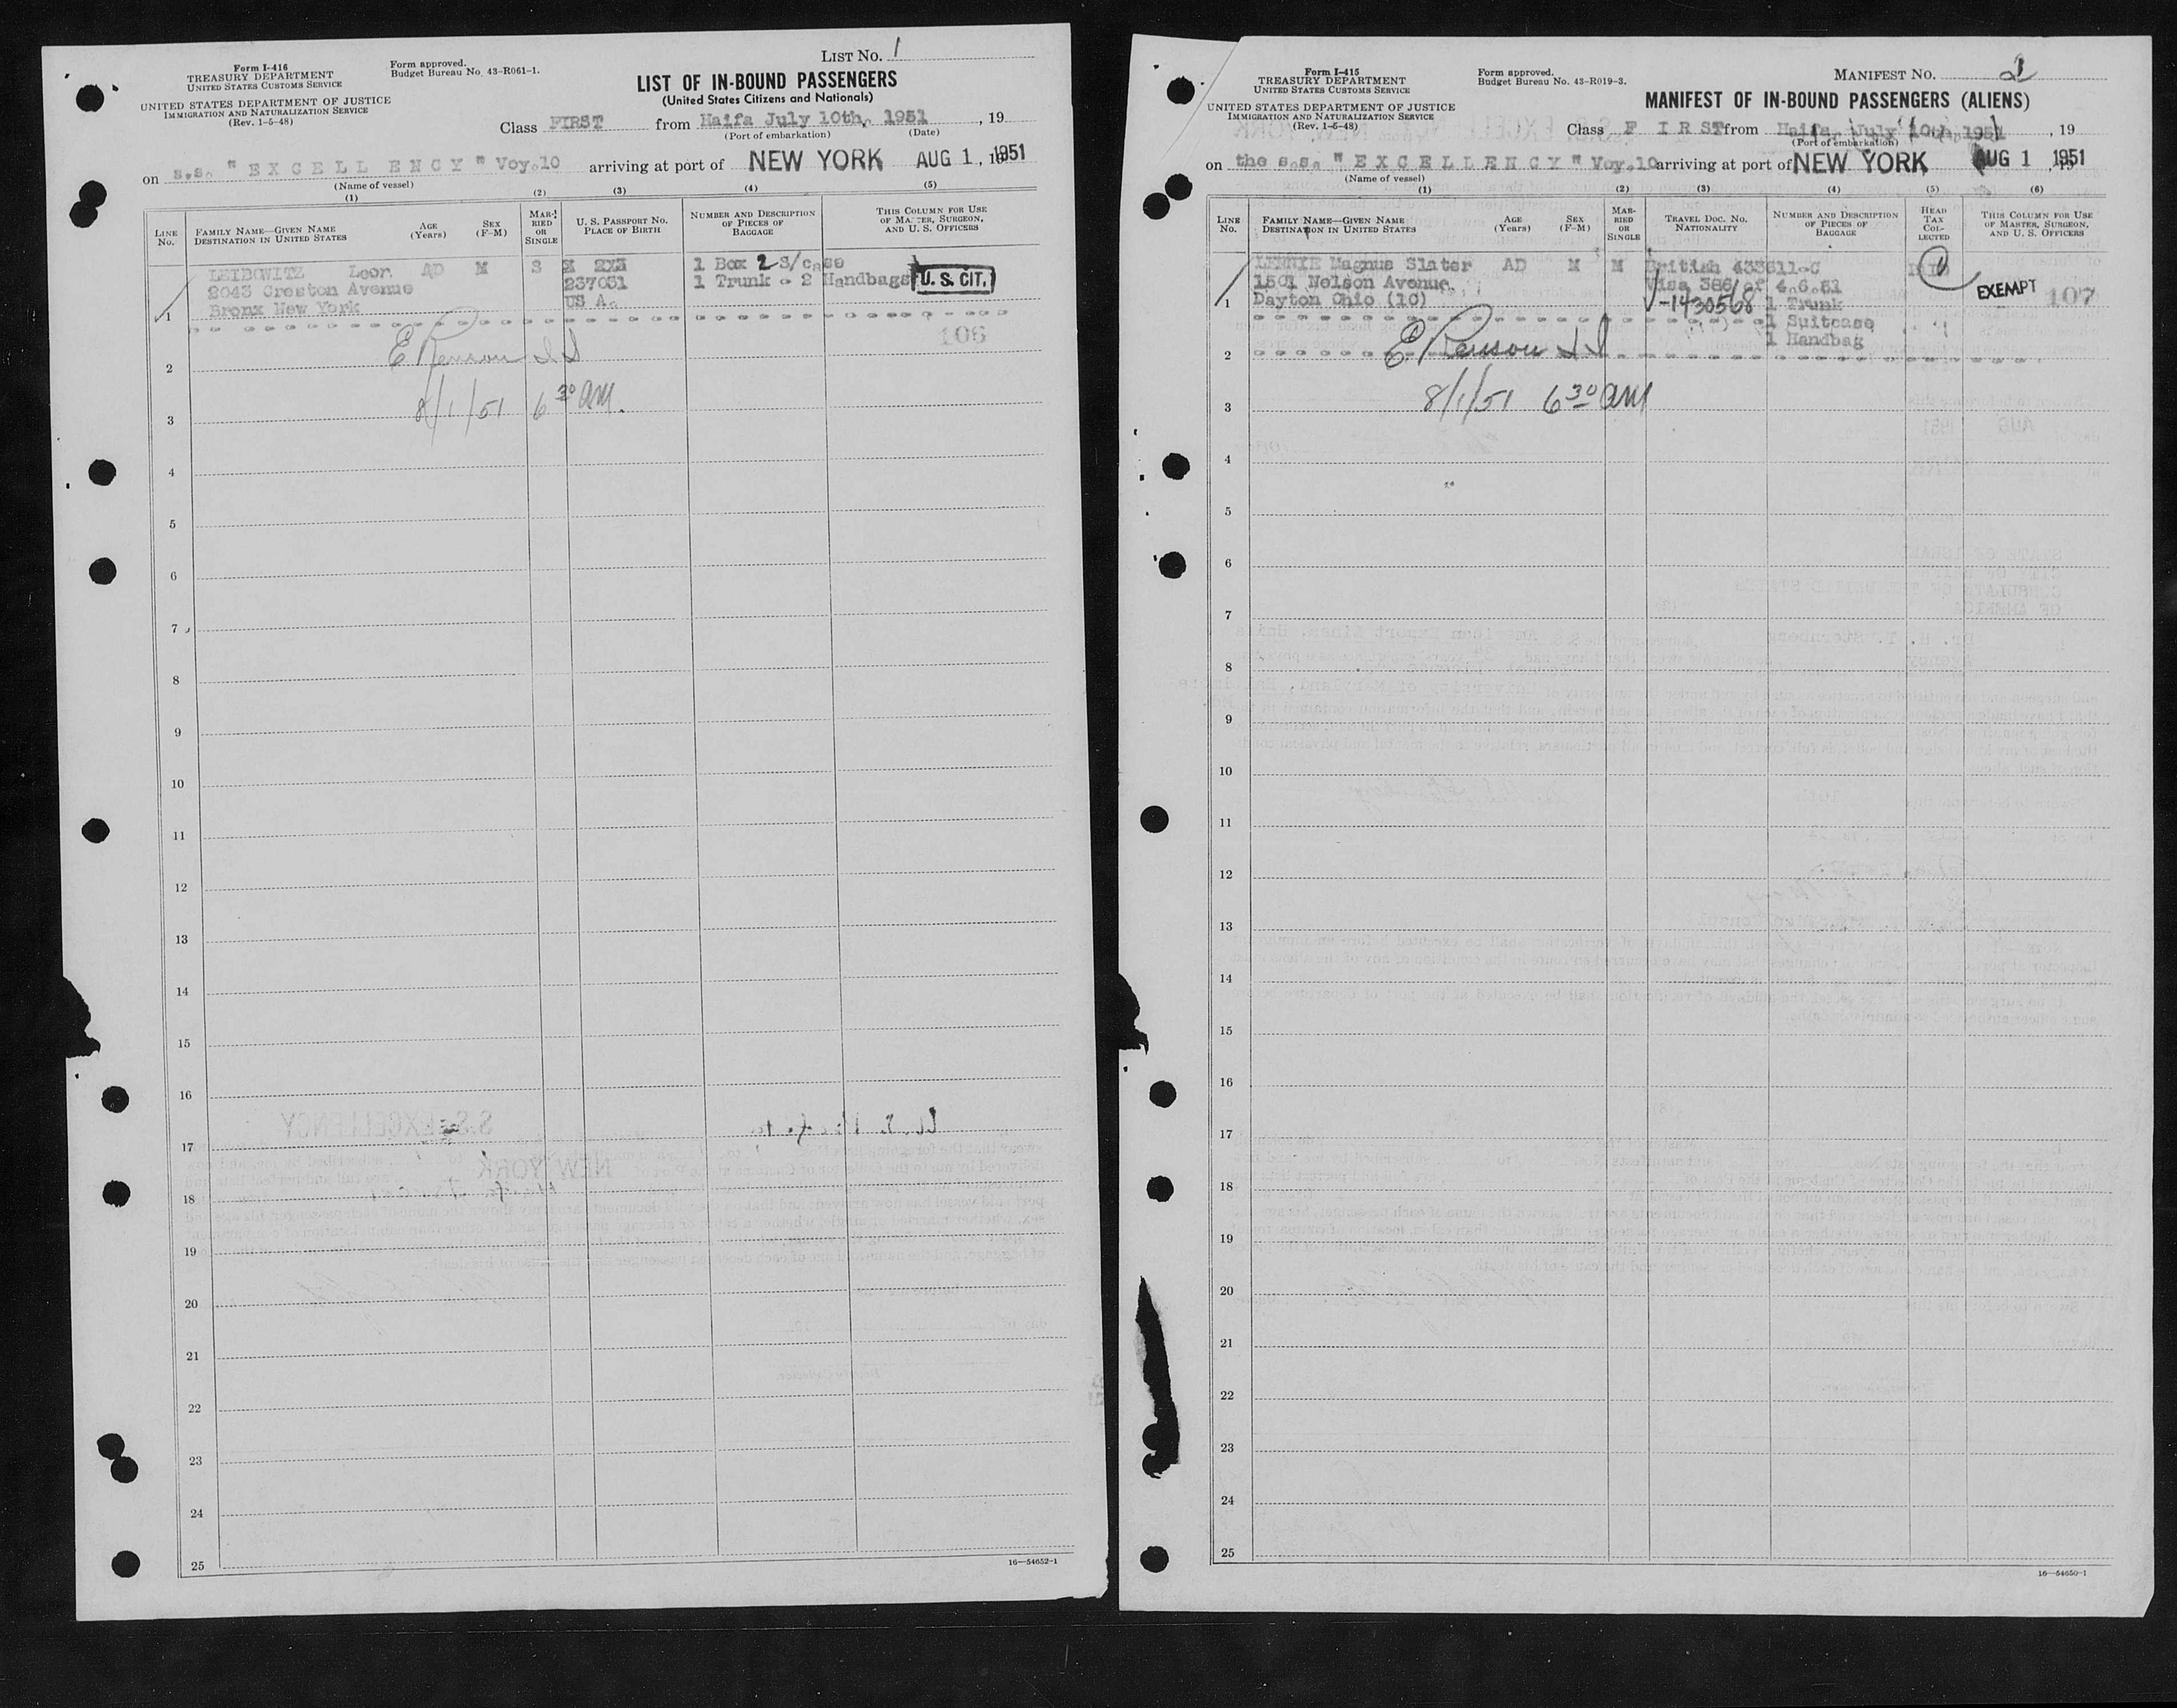 LIST NO. 1
Form I-416
TREASURY DEPARTMENT
UNITED STATES CUSTOMS SERVICE
Form approved.
Budget Bureau No. 43-R061-1.
UNITED STATES DEPARTMENT OF JUSTICE
IMMIGRATION AND NATURALIZATION SERVICE
(Rev. 1-5-48)
LIST OF IN-BOUND PASSENGERS
(United States Citizens and Nationals)
Class FIRST from Haifa July 10th, 1951, 19
(Port of embarkation) (Date)
on s.s. "EXCELLENCY" Voy.10 arriving at port of NEW YORK AUG 1, 1951
(Name of vessel)
(1) (2) (3) (4) (5)
LINE NO.
FAMILY NAME—GIVEN NAME
DESTINATION IN UNITED STATES
AGE (Years)
SEX (F-M)
MARRIED OR SINGLE
U. S. PASSPORT NO.
PLACE OF BIRTH
NUMBER AND DESCRIPTION OF PIECES OF BAGGAGE
THIS COLUMN FOR USE OF MASTER, SURGEON, AND U. S. OFFICERS
LEIBOWITZ Leon AD M S 1 Box 2 S/case
2043 Creston Avenue 237031 1 Trunk - 2 Handbags U. S. CIT.
Bronx New York US A.
1
106
E Renson
2
8/1/51 6 30 am.
3
4
5
6
7
8
9
10
11
12
13
14
15
16
17
18
19
20
21
22
23
24
25
16—54652-1
Form I-415
TREASURY DEPARTMENT
UNITED STATES CUSTOMS SERVICE
Form approved.
Budget Bureau No. 43-R019-3.
MANIFEST NO.
UNITED STATES DEPARTMENT OF JUSTICE
IMMIGRATION AND NATURALIZATION SERVICE
(Rev. 1-5-48)
MANIFEST OF IN-BOUND PASSENGERS (ALIENS)
Class FIRST from Haifa, July 10th, 1951, 19
(Port of embarkation)
on the s.s. "EXCELLENCY" Voy.10 arriving at port of NEW YORK AUG 1 1951
(Name of vessel)
(1) (2) (3) (4) (5) (6)
LINE NO.
FAMILY NAME—GIVEN NAME
DESTINATION IN UNITED STATES
AGE (Years)
SEX (F-M)
MARRIED OR SINGLE
TRAVEL DOC. NO.
NATIONALITY
NUMBER AND DESCRIPTION OF PIECES OF BAGGAGE
HEAD TAX COLLECTED
THIS COLUMN FOR USE OF MASTER, SURGEON, AND U. S. OFFICERS
LENNIE Magnus Slater AD M M British 433611-C
1501 Nelson Avenue, Visa 386 of 4.6.51 EXEMPT 107
1 Dayton Ohio (10) -1430568 1 Trunk
1 Suitcase
1 Handbag
2
E Renson
3 8/1/51 6 30 am
4
5
6
7
8
9
10
11
12
13
14
15
16
17
18
19
20
21
22
23
24
25
16—54650-1